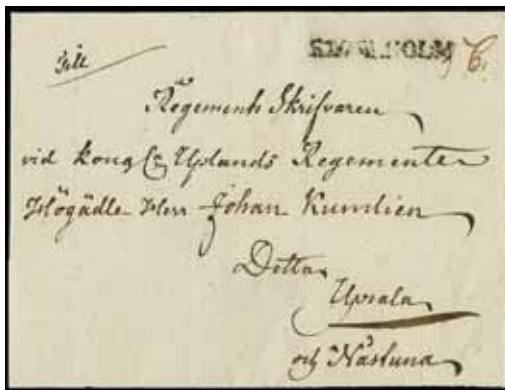 Till STOCKHOLM
Regements Skrifvaren
vid Kong Uplands Regemente
Högädle Herr Johan Kumlien
Detta
Upsala
och Nästuna